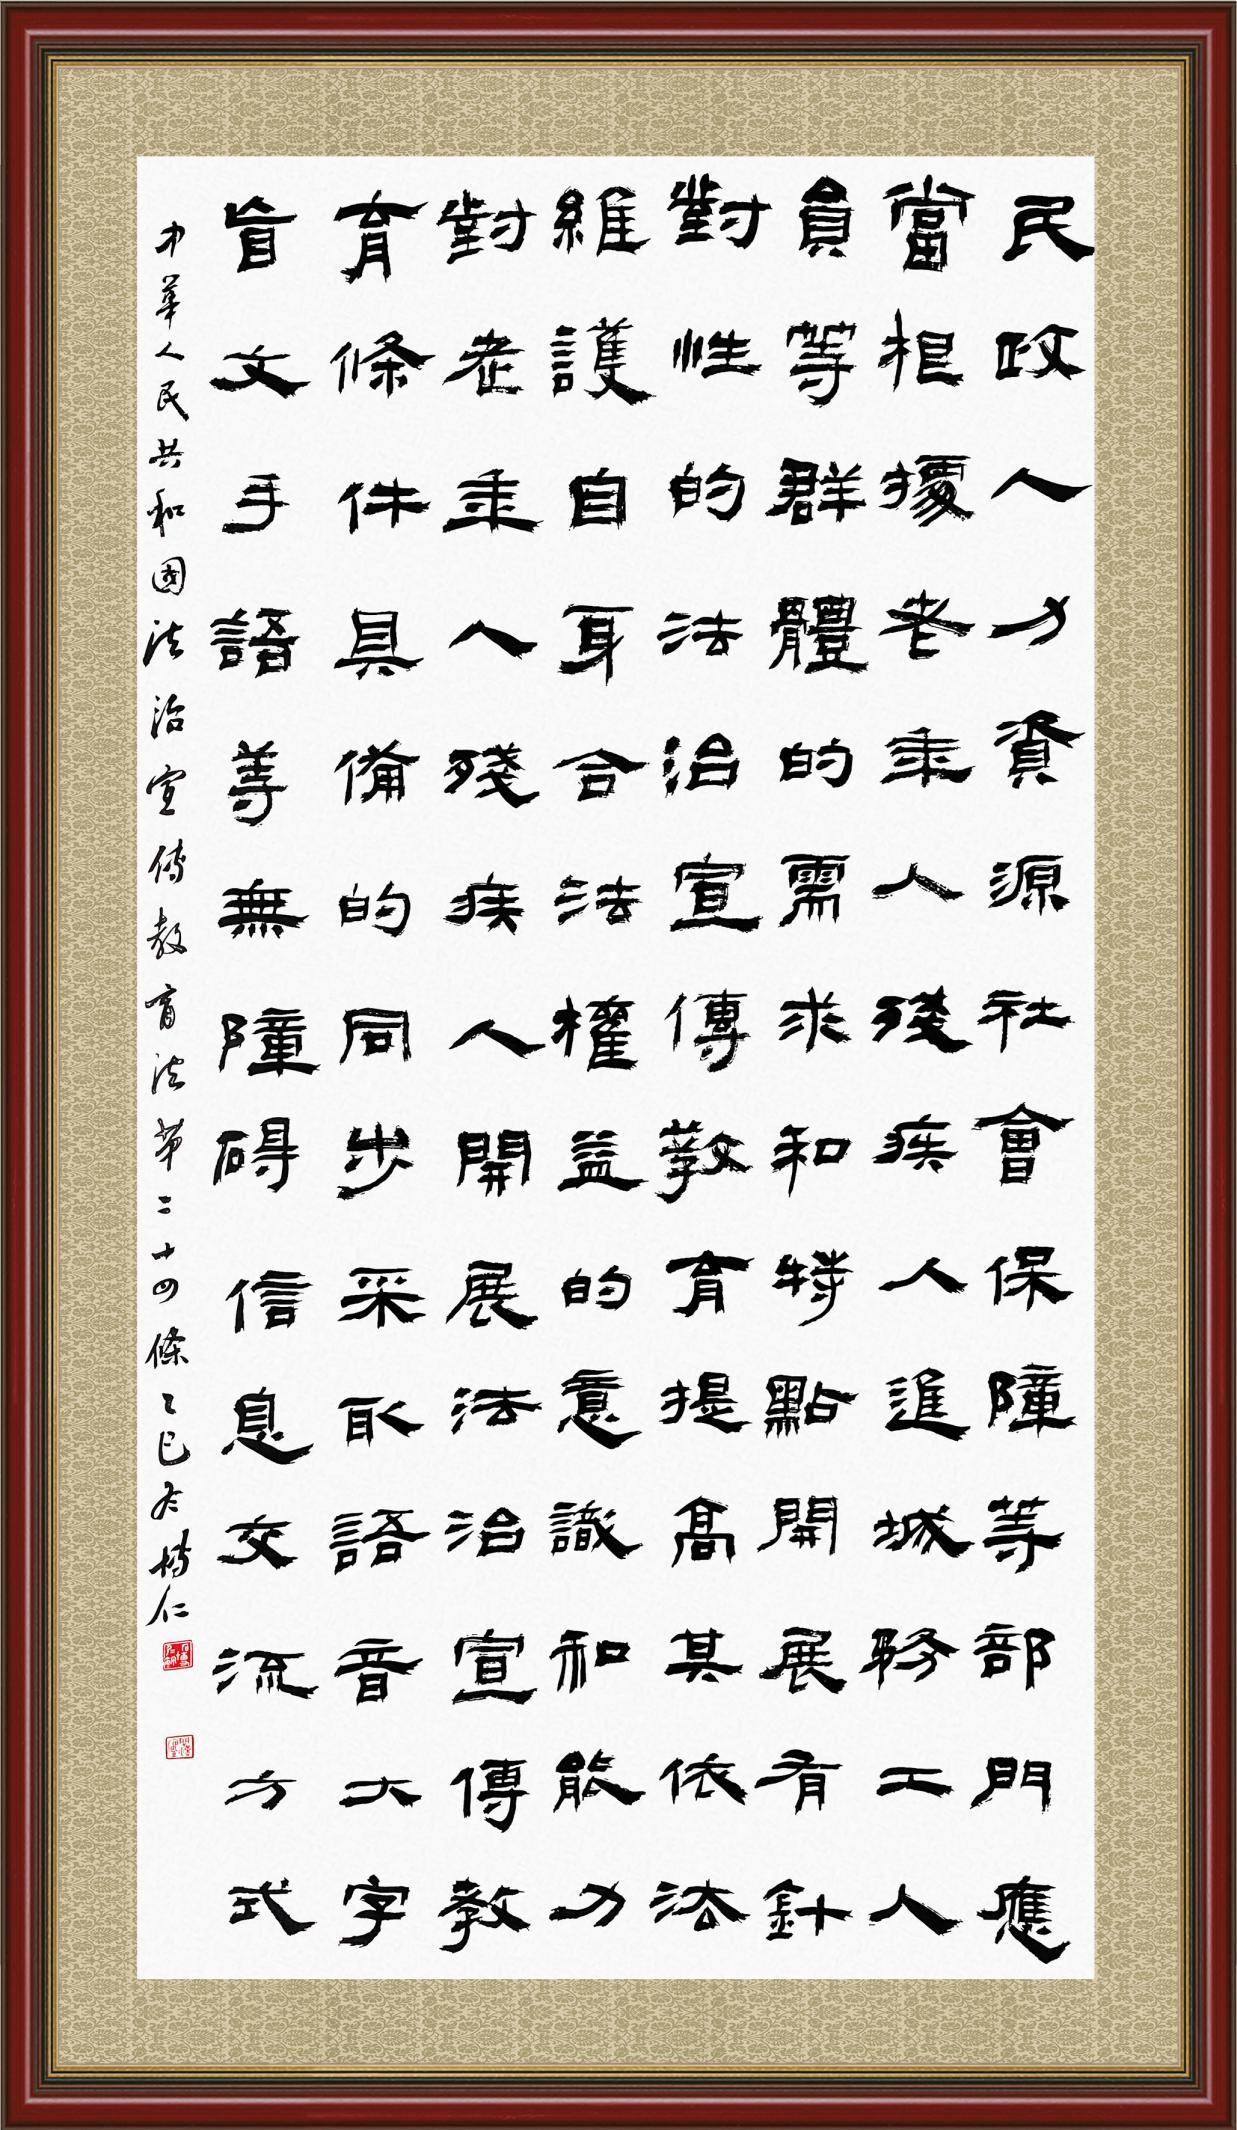 民政人力資源社會保障等部門應
當根據老年人殘疾人進城務工人
員等群體的需求和特點開展有針
對性的法治宣傳教育提高其依法
維護自身合法權益的意識和能力
對老年人殘疾人開展法治宣傳教
育條件具備的同步采取語音大字
盲文手語等無障碍信息交流方式
中華人民共和國法治宣傳教育法第二十四條乙巳冬博仁